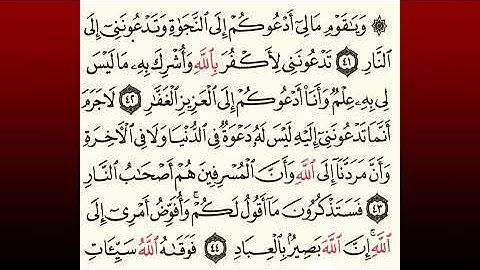 ۞ وَيَٰقَوْمِ مَا لِىٓ أَدْعُوكُمْ إِلَى ٱلنَّجَوٰةِ وَتَدْعُونَنِىٓ إِلَى
ٱلنَّارِ ٤١ تَدْعُونَنِى لِأَكْفُرَ بِٱللَّهِ وَأُشْرِكَ بِهِۦ مَا لَيْسَ
لِى بِهِۦ عِلْمٌ وَأَنَا۠ أَدْعُوكُمْ إِلَى ٱلْعَزِيزِ ٱلْغَفَّٰرِ ٤٢ لَا جَرَمَ
أَنَّمَا تَدْعُونَنِىٓ إِلَيْهِ لَيْسَ لَهُۥ دَعْوَةٌ فِى ٱلدُّنْيَا وَلَا فِى ٱلْءَاخِرَةِ
وَأَنَّ مَرَدَّنَآ إِلَى ٱللَّهِ وَأَنَّ ٱلْمُسْرِفِينَ هُمْ أَصْحَٰبُ ٱلنَّارِ
٤٣ فَسَتَذْكُرُونَ مَآ أَقُولُ لَكُمْ ۚ وَأُفَوِّضُ أَمْرِىٓ إِلَى
ٱللَّهِ ۚ إِنَّ ٱللَّهَ بَصِيرٌۢ بِٱلْعِبَادِ ٤٤ فَوَقَىٰهُ ٱللَّهُ سَيِّـَٔاتِ